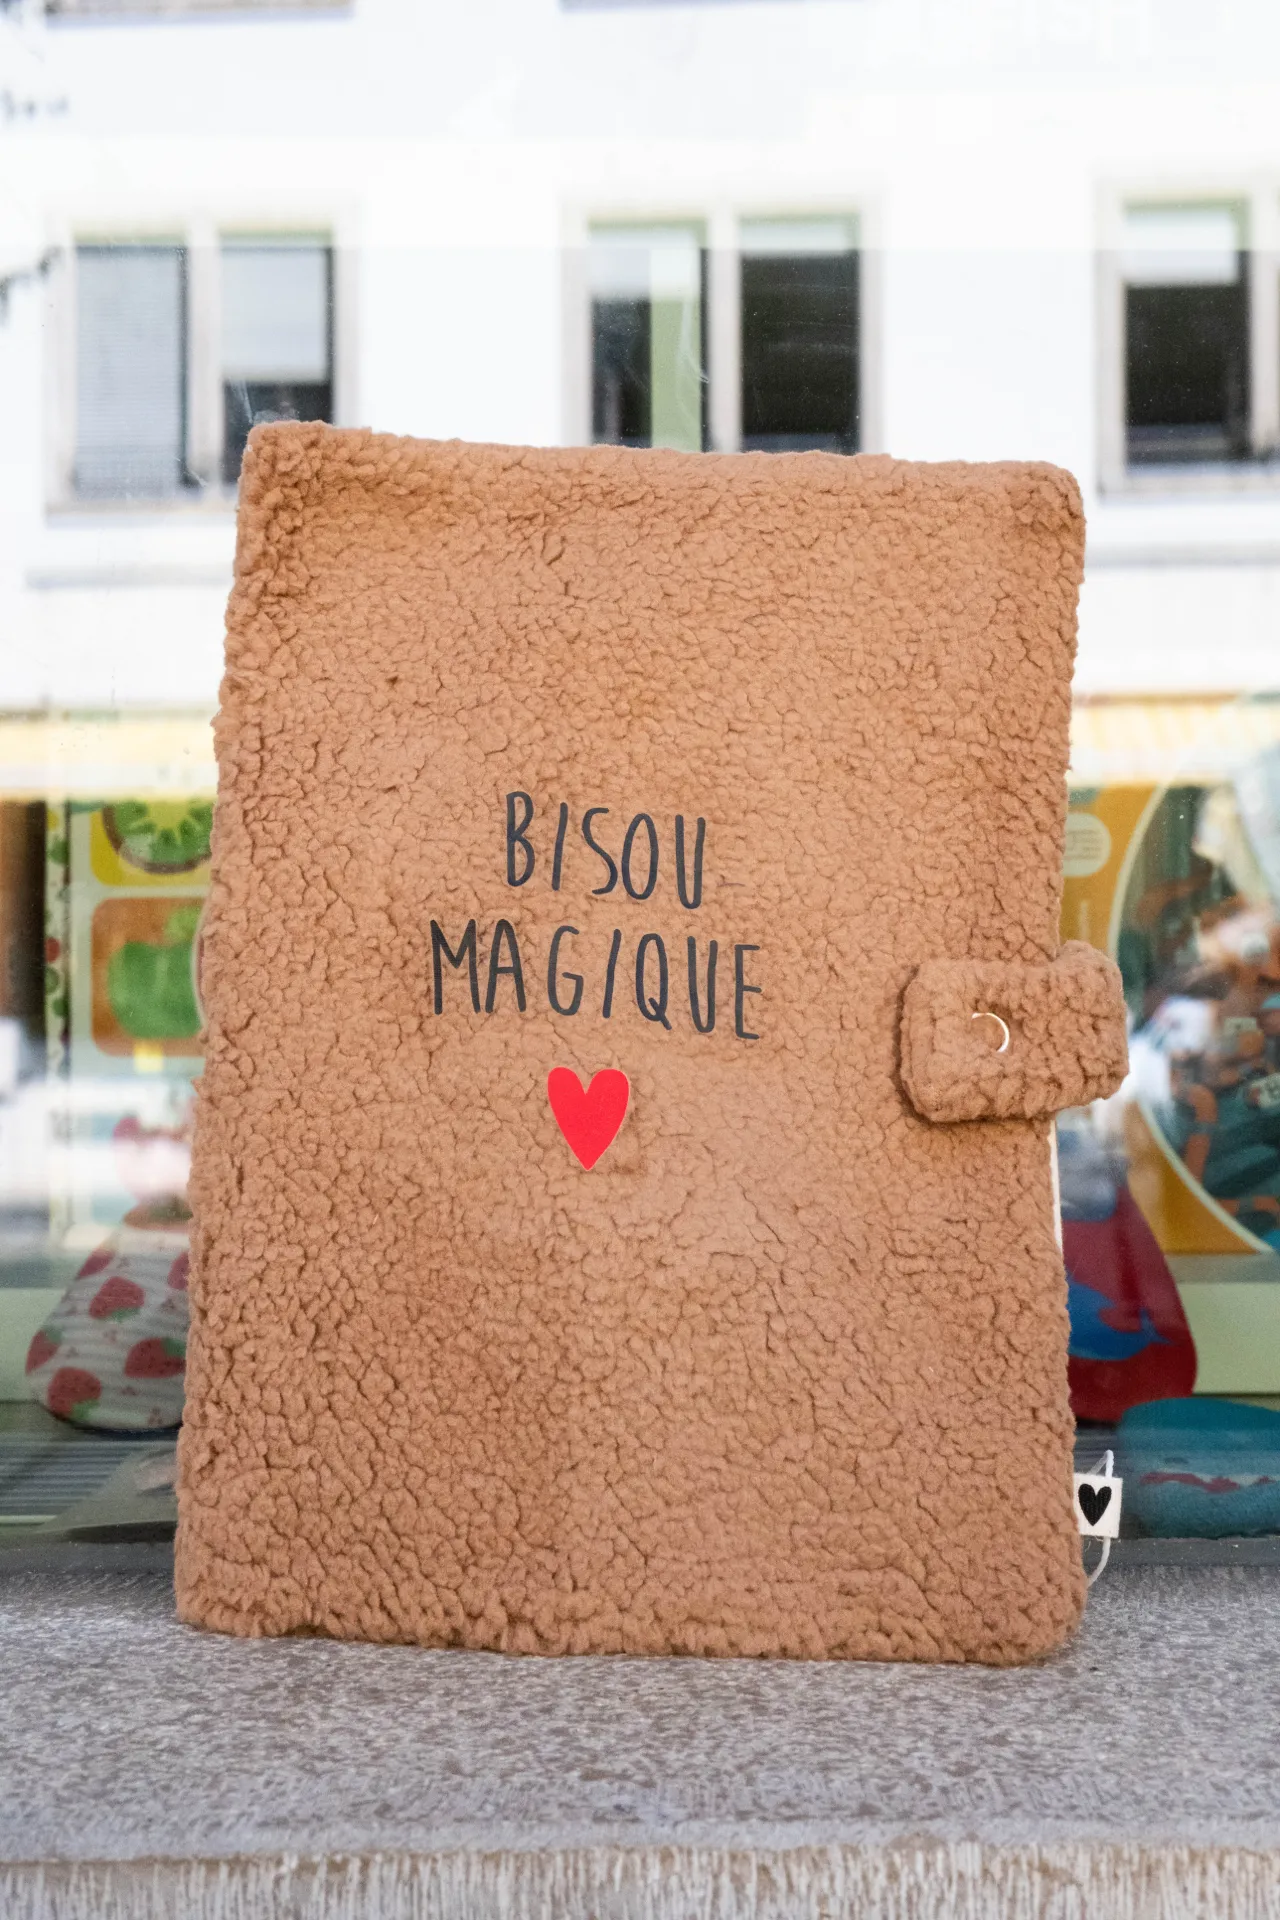 BISOU
MAGIQUE